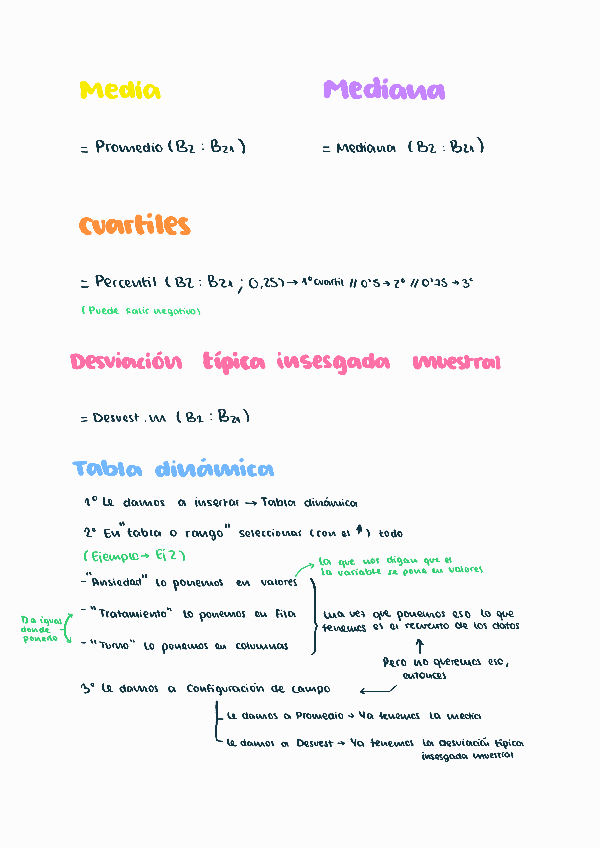 Media
Mediana
= Promedio (B2 : B21)
= Mediana (B2 : B21)
Cuartiles
= Percentil (B2 : B21 ; 0,25) → 1º cuartil // 0'5 → 2º // 0'75 → 3º
(Puede salir negativo)
Desviación típica insesgada muestral
= Desvest.m (B2 : B21)
Tabla dinámica
1º Le damos a insertar → Tabla dinámica
2º En "tabla o rango" seleccionar (con el ) todo
(Ejemplo → Ej 2)
la que nos digan que es
la variable se pone en valores
- "Ansiedad" lo ponemos en valores
- "Tratamiento" lo ponemos en fila
- "Turno" lo ponemos en columnas
Da igual
donde
ponerlo
una vez que ponemos eso lo que
tenemos es el recuento de los datos
Pero no queremos eso,
entonces
3º Le damos a Configuración de campo ←
Le damos a Promedio → Ya tenemos la media
Le damos a Desvest → Ya tenemos la desviación típica
insesgada muestral